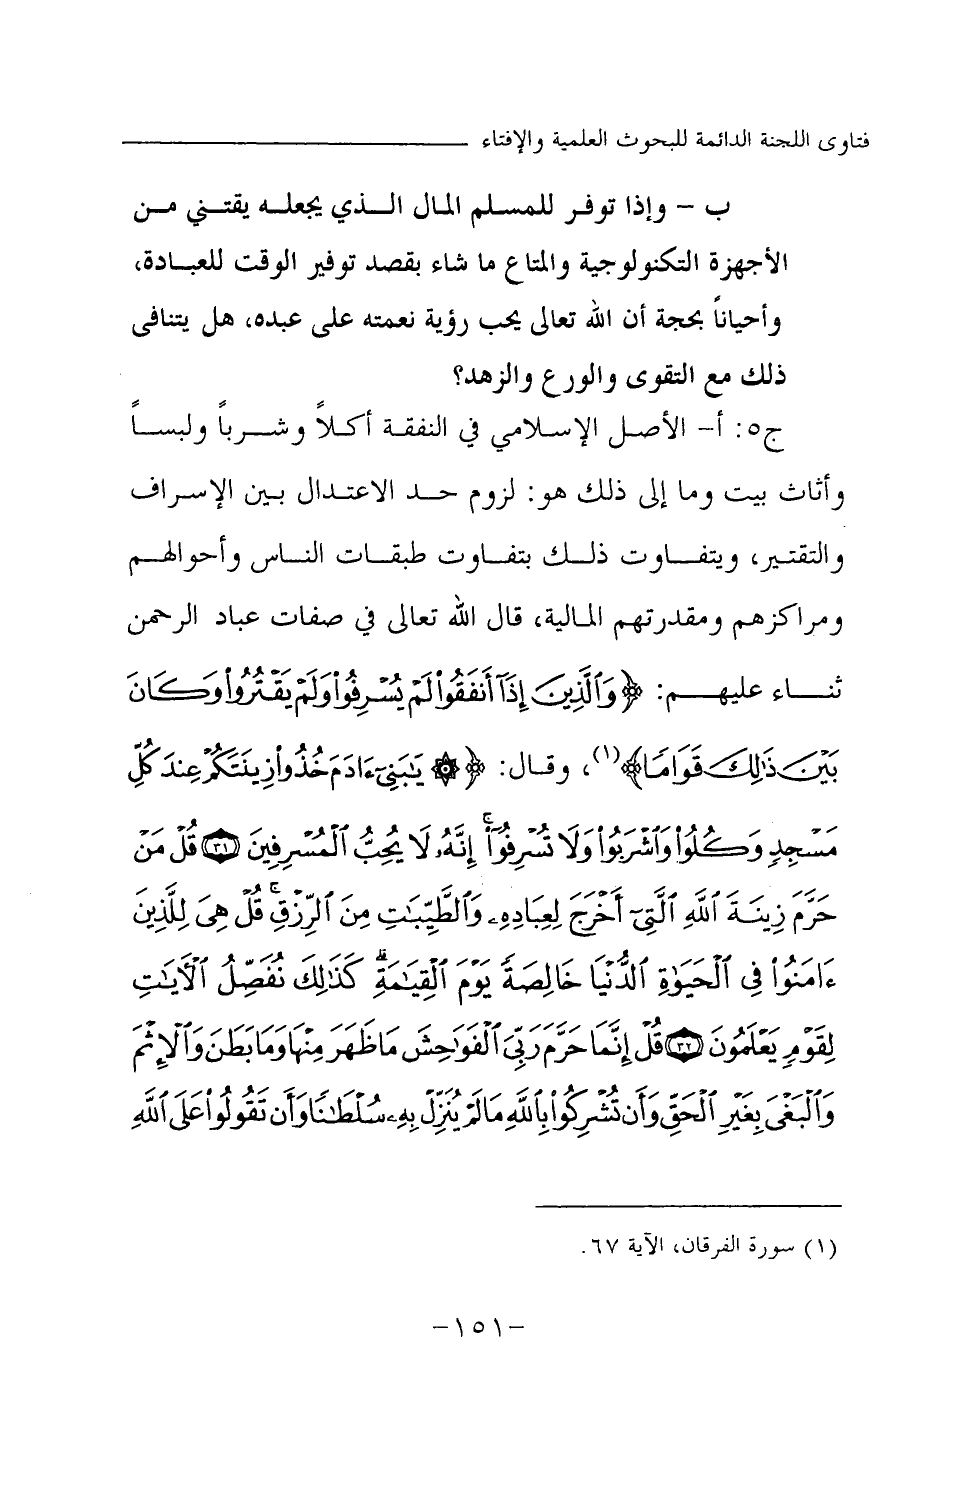 فتاوى اللجنة الدائمة للبحوث العلمية والإفتاء
ب - وإذا توفر للمسلم المال الذي يجعله يقتني من
الأجهزة التكنولوجية والمتاع ما شاء بقصد توفير الوقت للعبادة،
وأحياناً بحجة أن الله تعالى يحب رؤية نعمته على عبده، هل يتنافى
ذلك مع التقوى والورع والزهد؟
ج٥: أ- الأصل الإسلامي في النفقة أكلاً وشرباً ولبساً
وأثاث بيت وما إلى ذلك هو: لزوم حد الاعتدال بين الإسراف
والتقتير، ويتفاوت ذلك بتفاوت طبقات الناس وأحوالهم
ومراكزهم ومقدرتهم المالية، قال الله تعالى في صفات عباد الرحمن
ثناء عليهم: ﴿وَٱلَّذِينَ إِذَآ أَنفَقُوا۟ لَمْ يُسْرِفُوا۟ وَلَمْ يَقْتُرُوا۟ وَكَانَ
بَيْنَ ذَٰلِكَ قَوَامًا﴾(١)، وقال: ﴿۞ يَٰبَنِىٓ ءَادَمَ خُذُوا۟ زِينَتَكُمْ عِندَ كُلِّ
مَسْجِدٍ وَكُلُوا۟ وَٱشْرَبُوا۟ وَلَا تُسْرِفُوٓا۟ ۚ إِنَّهُۥ لَا يُحِبُّ ٱلْمُسْرِفِينَ ٣١ قُلْ مَنْ
حَرَّمَ زِينَةَ ٱللَّهِ ٱلَّتِىٓ أَخْرَجَ لِعِبَادِهِۦ وَٱلطَّيِّبَٰتِ مِنَ ٱلرِّزْقِ ۚ قُلْ هِىَ لِلَّذِينَ
ءَامَنُوا۟ فِى ٱلْحَيَوٰةِ ٱلدُّنْيَا خَالِصَةً يَوْمَ ٱلْقِيَٰمَةِ ۗ كَذَٰلِكَ نُفَصِّلُ ٱلْءَايَٰتِ
لِقَوْمٍ يَعْلَمُونَ ٣٢ قُلْ إِنَّمَا حَرَّمَ رَبِّىَ ٱلْفَوَٰحِشَ مَا ظَهَرَ مِنْهَا وَمَا بَطَنَ وَٱلْإِثْمَ
وَٱلْبَغْىَ بِغَيْرِ ٱلْحَقِّ وَأَن تُشْرِكُوا۟ بِٱللَّهِ مَا لَمْ يُنَزِّلْ بِهِۦ سُلْطَٰنًا وَأَن تَقُولُوا۟ عَلَى ٱللَّهِ
(١) سورة الفرقان، الآية ٦٧.
-١٥١-